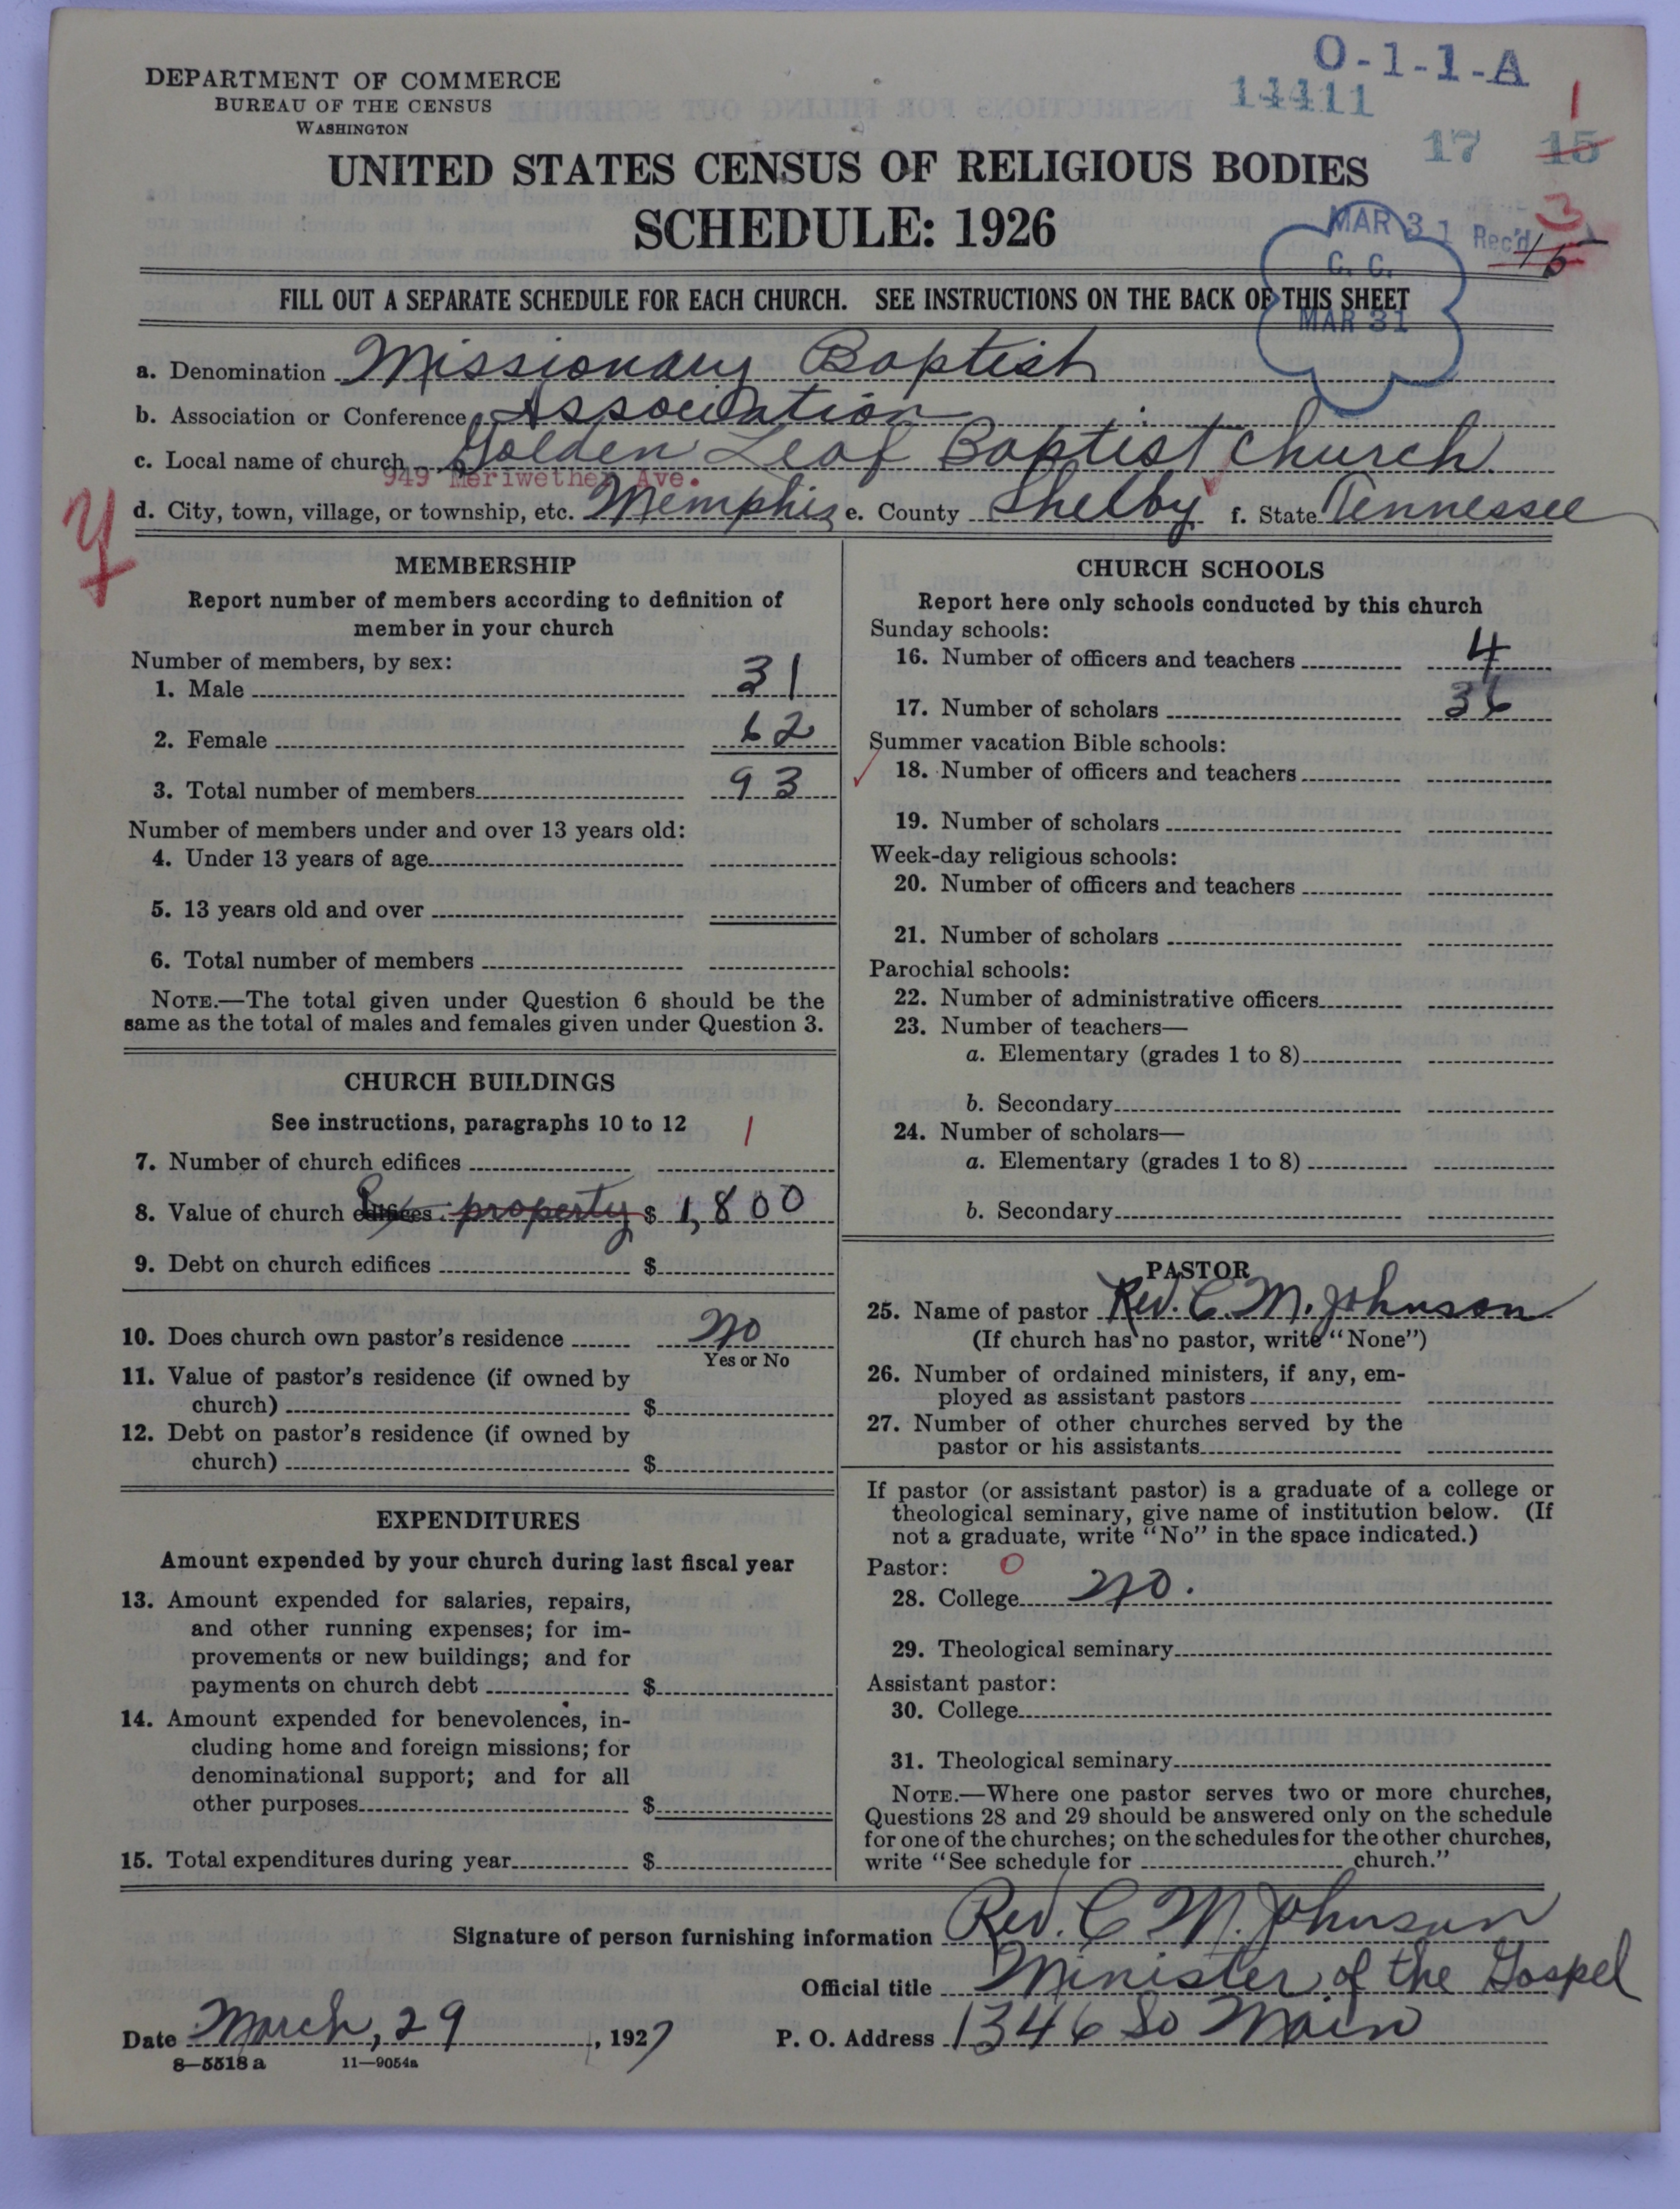 DEPARTMENT OF COMMERCE
BUREAU OF THE CENSUS
WASHINGTON
O-1-1-A
14411
1
17 15
UNITED STATES CENSUS OF RELIGIOUS BODIES
SCHEDULE: 1926
3
MAR 31 Rec'd
15
C. C.
MAR 31
FILL OUT A SEPARATE SCHEDULE FOR EACH CHURCH. SEE INSTRUCTIONS ON THE BACK OF THIS SHEET
a. Denomination Missionary Baptist
b. Association or Conference Association
c. Local name of church Golden Leaf Baptist Church
949 Meriwether Ave.
d. City, town, village, or township, etc. Memphis e. County Shelby f. State Tennessee
MEMBERSHIP
Report number of members according to definition of
member in your church
Number of members, by sex:
1. Male 31
2. Female 62
3. Total number of members 93
Number of members under and over 13 years old:
4. Under 13 years of age
5. 13 years old and over
6. Total number of members
NOTE.—The total given under Question 6 should be the
same as the total of males and females given under Question 3.
CHURCH BUILDINGS
See instructions, paragraphs 10 to 12
1
7. Number of church edifices
8. Value of church edifices property $ 1,800
9. Debt on church edifices $
10. Does church own pastor's residence No
Yes or No
11. Value of pastor's residence (if owned by
church) $
12. Debt on pastor's residence (if owned by
church) $
EXPENDITURES
Amount expended by your church during last fiscal year
13. Amount expended for salaries, repairs,
and other running expenses; for im-
provements or new buildings; and for
payments on church debt $
14. Amount expended for benevolences, in-
cluding home and foreign missions; for
denominational support; and for all
other purposes $
15. Total expenditures during year $
CHURCH SCHOOLS
Report here only schools conducted by this church
Sunday schools:
16. Number of officers and teachers 4
17. Number of scholars 36
Summer vacation Bible schools:
18. Number of officers and teachers
19. Number of scholars
Week-day religious schools:
20. Number of officers and teachers
21. Number of scholars
Parochial schools:
22. Number of administrative officers
23. Number of teachers—
a. Elementary (grades 1 to 8)
b. Secondary
24. Number of scholars—
a. Elementary (grades 1 to 8)
b. Secondary
PASTOR
25. Name of pastor Rev. C. M. Johnson
(If church has no pastor, write "None")
26. Number of ordained ministers, if any, em-
ployed as assistant pastors
27. Number of other churches served by the
pastor or his assistants
If pastor (or assistant pastor) is a graduate of a college or
theological seminary, give name of institution below. (If
not a graduate, write "No" in the space indicated.)
Pastor: 0
28. College No.
29. Theological seminary
Assistant pastor:
30. College
31. Theological seminary
NOTE.—Where one pastor serves two or more churches,
Questions 28 and 29 should be answered only on the schedule
for one of the churches; on the schedules for the other churches,
write "See schedule for church."
Signature of person furnishing information Rev. C M. Johnson
Official title Minister of the Gospel
Date March, 29, 1927 P. O. Address 1346 So Main
8-5518 a 11-9054a